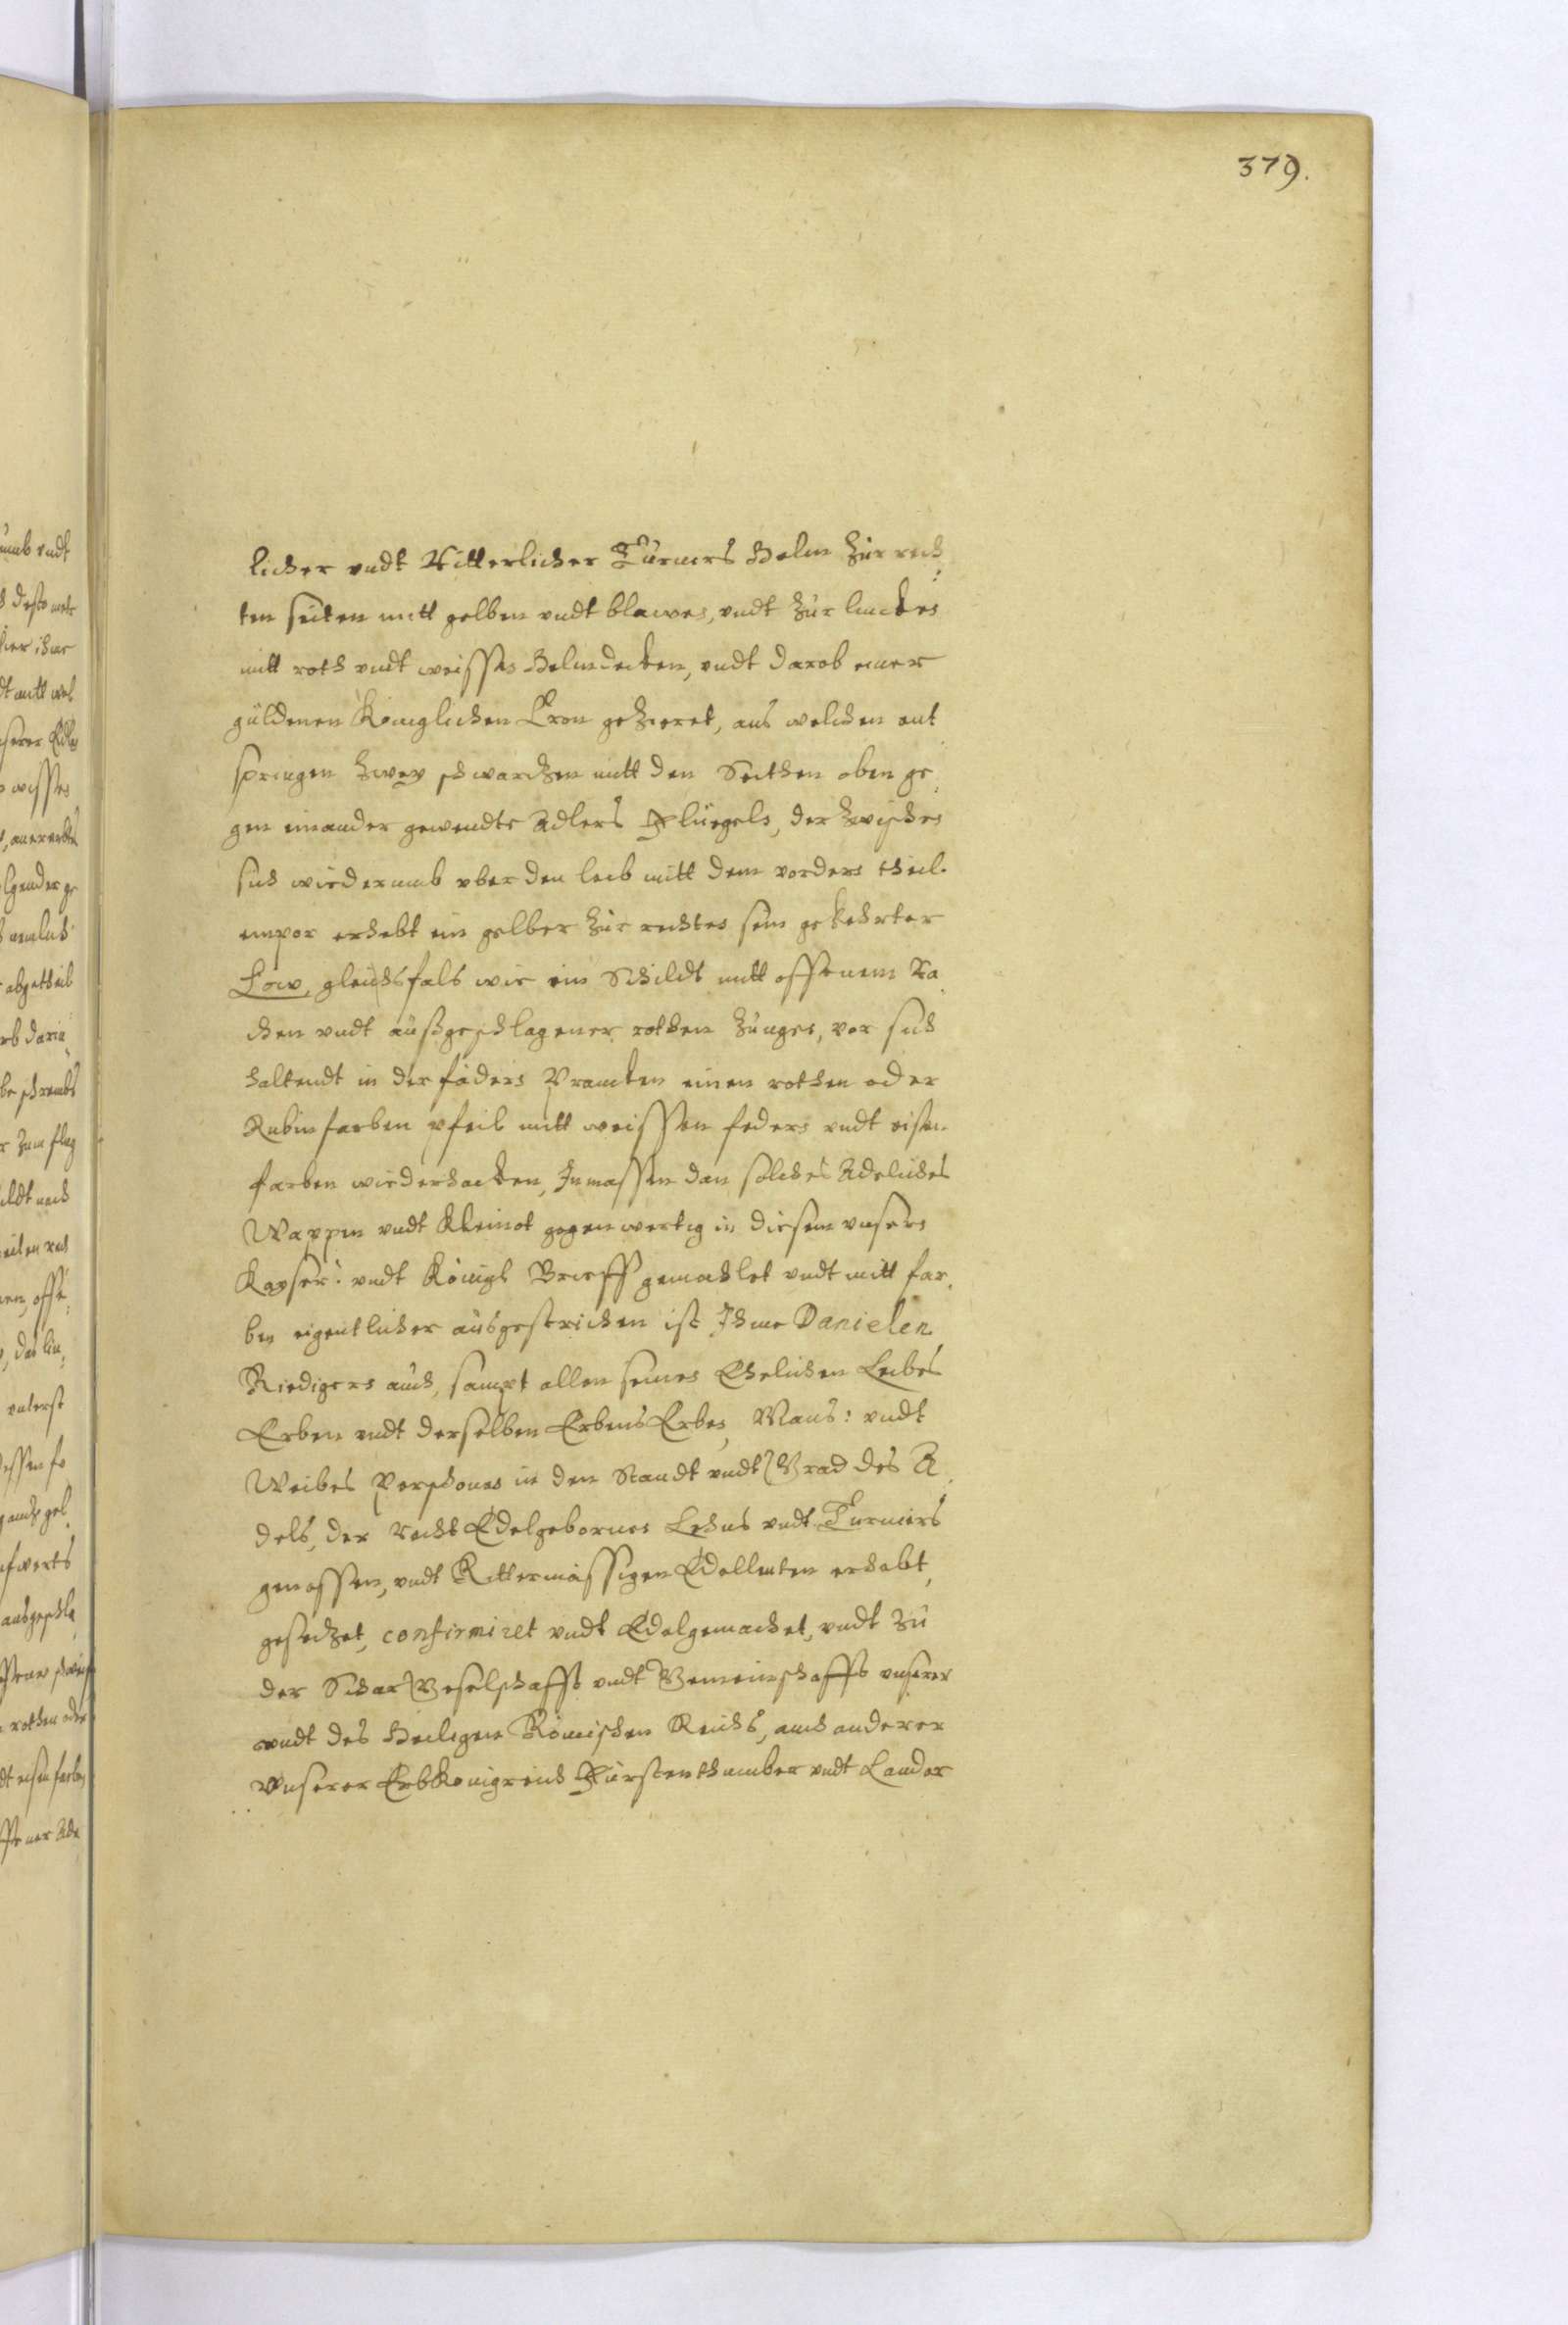 379.
licher vndt Ritterlicher Turniers Helm zur rech
ten seiten mitt gelben vndt blawen, vndt zur lincken
mitt roth vndt weissen Helmdecken, vndt darob einer
güldenen Königlichen Cron gezieret, aus welchen ent
springen zwey schwarzen mitt den Sechsen oben ge
gen einander gewendte Adlers Fluegels, der zwischen
sich wiederumb vber den leib mitt dem vordern theil
empor erhebt ein gelber zur rechten sein gekehrter
Low, gleichsfals wie im Schildt mitt offenem Ra
chen vndt außgeschlagener rothen Zungen, vor sich
haltendt in der födern Prancken einen rothen oder
Rubinfarben pfeil mitt weissen federn vndt eisen
farben wiederhacken, Inmassen dan solches Adeliches
Wappen vndt Kleinot gegenwertig in diesem vnsern
Kayser: vndt Königl Brieff gemahlet vndt mitt far
ben eigentlicher ausgestrichen ist Ihme Danielen
Riedigern auch, sampt allen seines Ehelichen Leibes
Erben vndt derselben ErbensErben, Mans: vndt
Weibes Perschonen in den Standt vndt Grad des A
dels, der Recht Edelgebornen Lehns vndt Turniers
genossen, vndt Rittermässigen Edelleuten erhebt,
gesetzet, confirmiret vndt Edelgemachet, vndt zu
der Schar Geselschafft vndt Gemeinschafft vnserer
vndt des Heiligen Römischen Reichs, auch anderer
vnserer ErbKönigreich Fürstenthumber vndt Lander